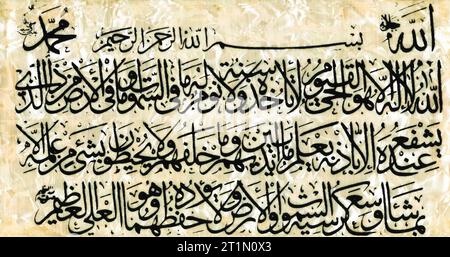 الله جل جلاله بسم الله الرحمن الرحيم محمد
الله لا إله إلا هو الحي القيوم لا تأخذه سنة ولا نوم له ما في السموات وما في الأرض من ذا الذي
يشفع عنده إلا بإذنه يعلم ما بين أيديهم وما خلفهم ولا يحيطون بشيء من علمه إلا
بما شاء وسع كرسيه السموات والأرض ولا يؤده حفظهما وهو العلي العظيم
alamy - 2T1N0X3